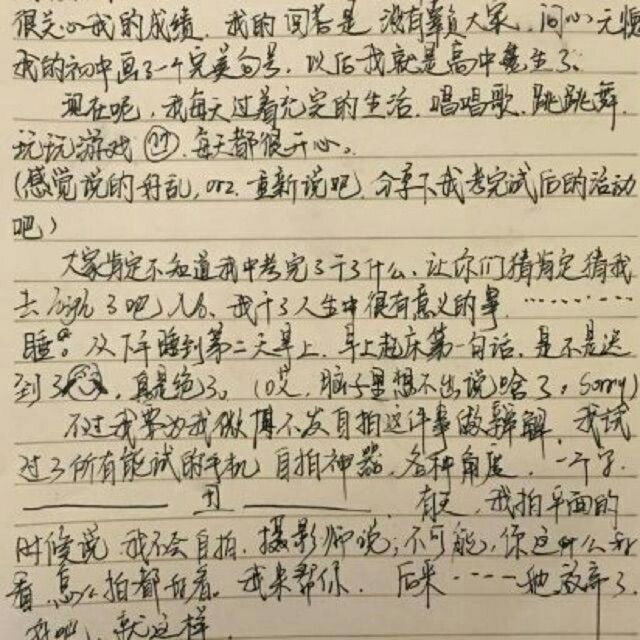 很关心我的成绩，我的回答是没有辜负大家，问心无愧
我的初中画了一个完美句号，以后我就是高中生了。
现在呢，我每天过着充实的生活，唱唱歌，跳跳舞，
玩玩游戏，每天都很开心。
(感觉说的好乱，orz，重新说吧，分享下我考完试后的活动
吧)
大家肯定不知道我中考完了干了什么，让你们猜肯定猜我
去 high 了吧，No，我干了人生中很有意义的事…………
睡。从下午睡到第二天早上，早上起床第一句话，是不是迟
到了，真是绝了。(哎，脑子里想不出说啥了，sorry)
不过我要为我微博不发自拍这件事做辩解，我试
过了所有能试的手机，自拍神器，各种角度，一个字，
丑，有天，我拍平面的
时候说，我不会自拍，摄影师说：不可能，你这么好
看，怎么拍都好看。我来帮你，后来……他放弃了。
就这样